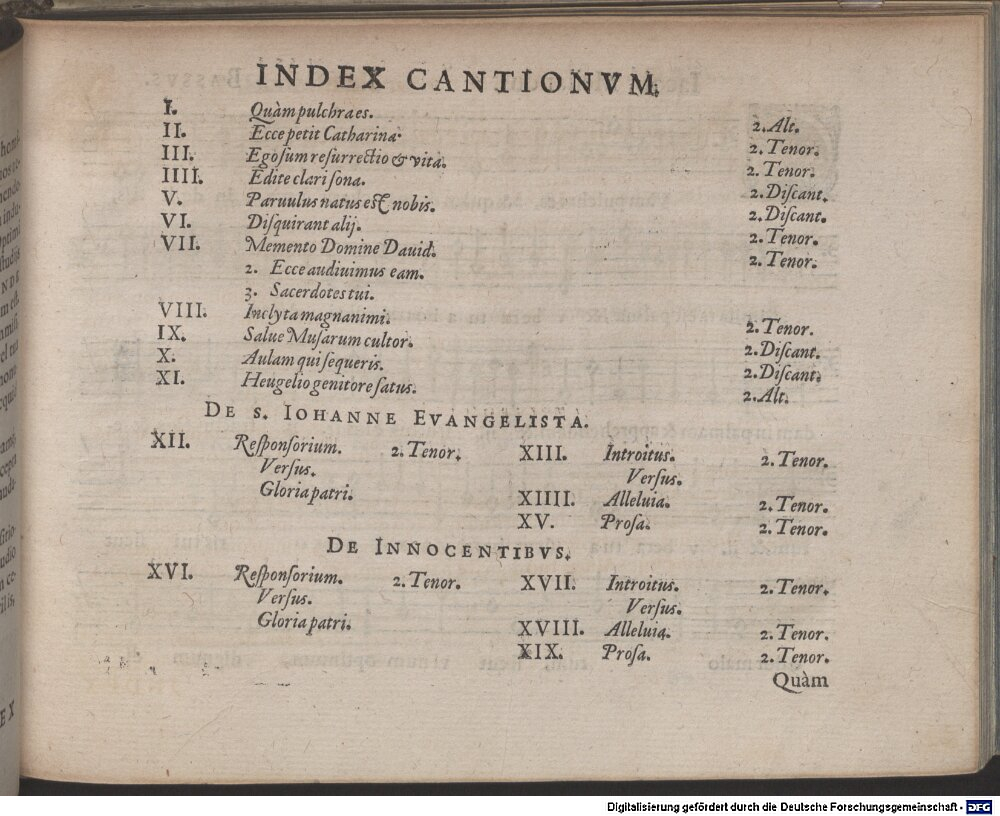 INDEX CANTIONVM.
I. Quàm pulchra es. 2. Alt.
II. Ecce petit Catharina. 2. Tenor.
III. Ego sum resurrectio & vita. 2. Tenor.
IIII. Edite clari sona. 2. Discant.
V. Paruulus natus est nobis. 2. Discant.
VI. Disquirant alij. 2. Tenor.
VII. Memento Domine Dauid. 2. Tenor.
2. Ecce audiuimus eam.
3. Sacerdotes tui.
VIII. Inclyta magnanimi. 2. Tenor.
IX. Salue Musarum cultor. 2. Discant.
X. Aulam qui sequeris. 2. Discant.
XI. Heugelio genitore satus. 2. Alt.
DE S. IOHANNE EVANGELISTA.
XII. Responsorium. 2. Tenor. XIII. Introitus. 2. Tenor.
Versus. Versus.
Gloria patri. XIIII. Alleluia. 2. Tenor.
XV. Prosa. 2. Tenor.
DE INNOCENTIBVS.
XVI. Responsorium. 2. Tenor. XVII. Introitus. 2. Tenor.
Versus. Versus.
Gloria patri. XVIII. Alleluia. 2. Tenor.
XIX. Prosa. 2. Tenor.
Quàm
Digitalisierung gefördert durch die Deutsche Forschungsgemeinschaft - DFG